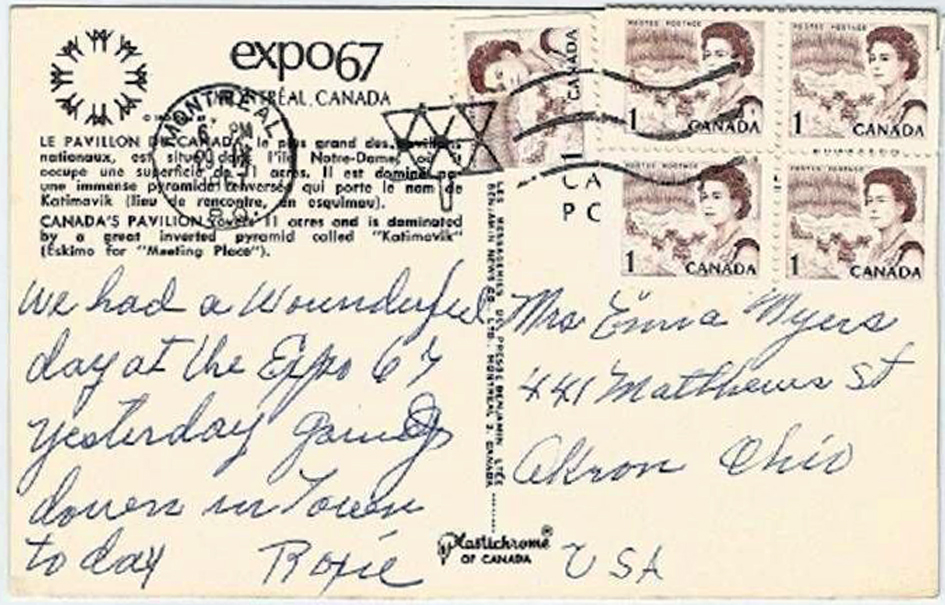 expo67
MONTRÉAL, CANADA
MONTREAL
PM
LE PAVILLON DU CANADA, le plus grand des pavillons
nationaux, est situé dans l'île Notre-Dame, où il
occupe une superficie de 11 acres. Il est dominé par
une immense pyramide renversée qui porte le nom de
Katimavik (lieu de rencontre, en esquimau).
CANADA'S PAVILION covers 11 acres and is dominated
by a great inverted pyramid called "Katimavik"
(Eskimo for "Meeting Place").
We had a Wounderful
day at the Expo 67
yesterday going
down in Town
to day Roxie
LES MESSAGERIES DE PRESSE BENJAMIN LTÉE
BENJAMIN NEWS CO. LTD. MONTREAL 3, CANADA
Plastichrome®
OF CANADA
CANADA
1
POSTES POSTAGE
1 CANADA
POSTES POSTAGE
1 CANADA
1 CANADA
1 CANADA
CA
PC
Mrs Emma Myers
441 Matthews St
Akron Ohio
USA